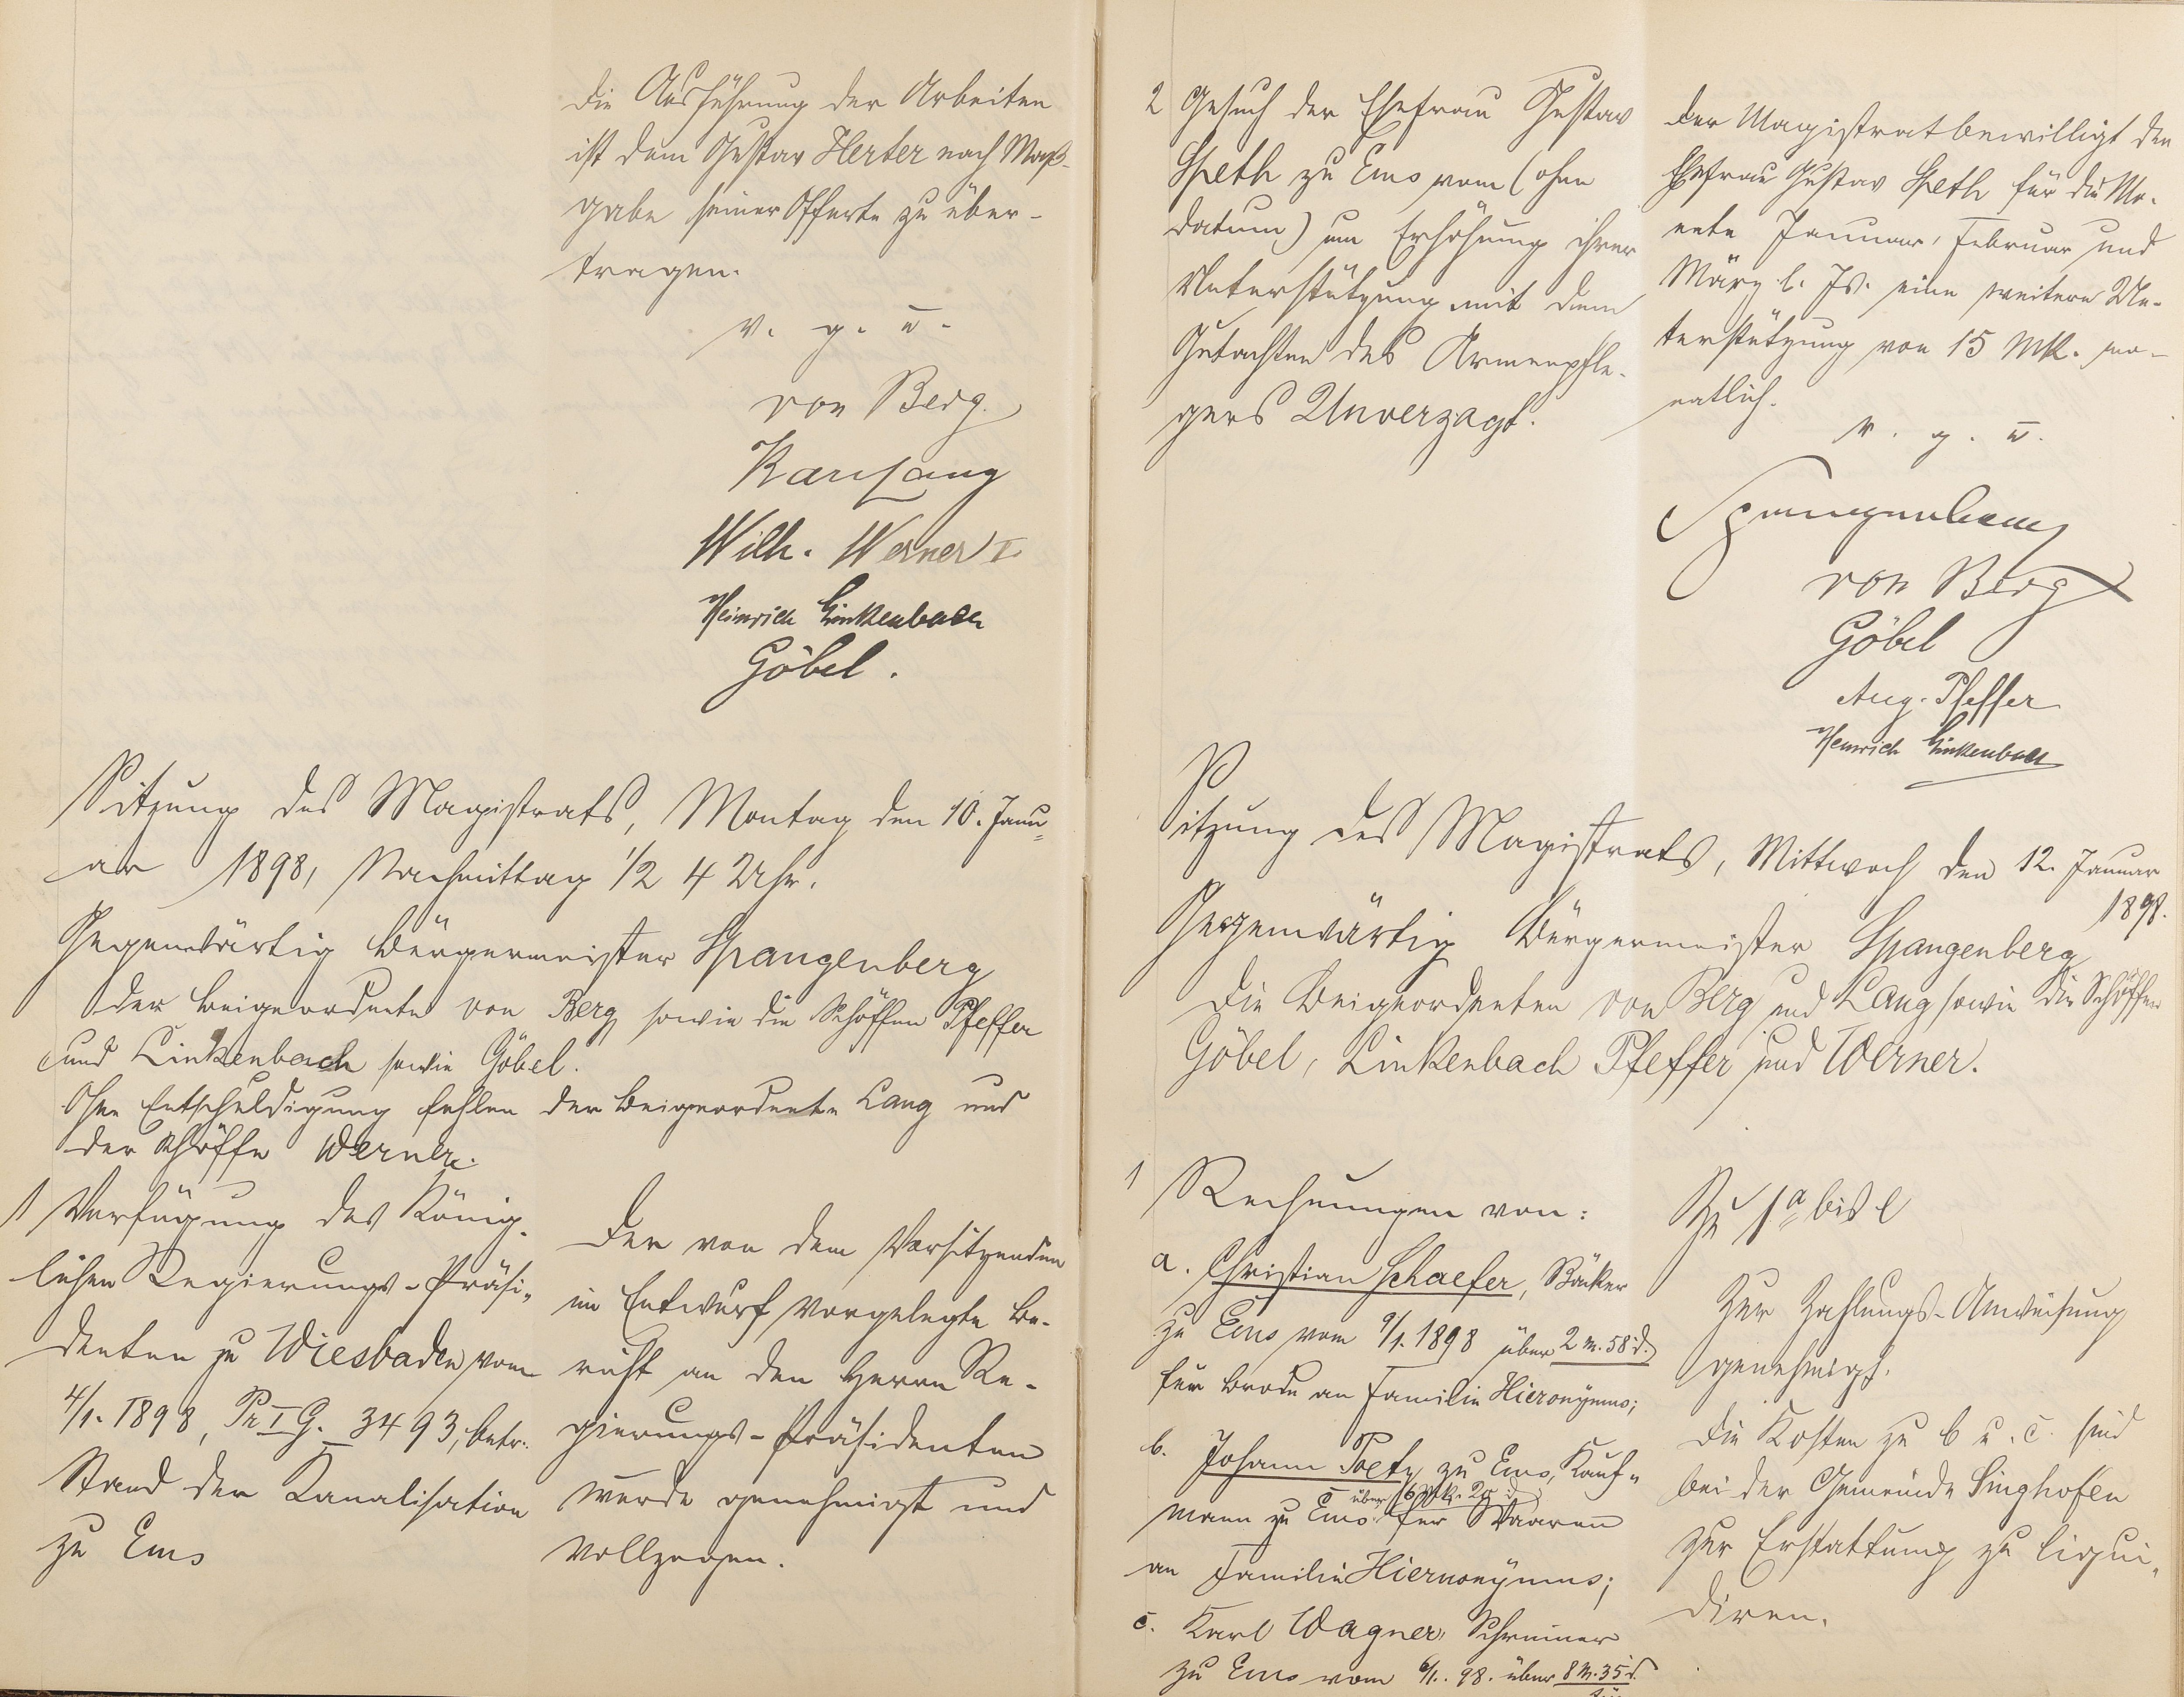 die Ausführung der Arbeiten
ist dem Gustav Herter nach Maß-
gabe seiner Offerte zu über-
tragen.
v. g. u.
von Berg
Karl Lang
Wilh. Werner I
Heinrich Linkenbach
Göbel.
Sitzung des Magistrats, Montag den 10. Janu-
ar 1898, Nachmittag 1/2 4 Uhr.
Gegenwärtig Bürgermeister Spangenberg
der Beigeordnete von Berg sowie die Schöffen Pfeffer
und Linkenbach sowie Göbel.
Ohne Entschuldigung fehlen der Beigeordnete Lang und
der Schöffe Werner.
1 Verfügung des König-
lichen Regierungs-Präsi-
denten zu Wiesbaden vom
4/1. 1898, Pr I G. 3493, betr.
Stand der Kanalisation
zu Ems
Der von dem Vorsitzenden
im Entwurf vorgelegte Be-
richt an den Herrn Re-
gierungs-Präsidenten
wurde genehmigt und
vollzogen.
2 Gesuch der Ehefrau Gustav
Speth zu Ems vom (ohne
Datum) um Erhöhung ihrer
Unterstützung mit dem
Gutachten des Armenpfle-
gers Unverzagt.
Der Magistrat bewilligt der
Ehefrau Gustav Speth für die Mo-
nate Januar, Februar und
März l. Js. eine weitere Un-
terstützung von 15 Mk. mo-
natlich.
v. g. u.
Spangenberg
von Berg
Göbel
Aug. Pfeffer
Heinrich Linkenbach
Sitzung des Magistrats, Mittwoch den 12. Januar
1898.
Gegenwärtig Bürgermeister Spangenberg
die Beigeordneten von Berg und Lang sowie die Schöffen
Göbel, Linkenbach Pfeffer und Werner.
1 Rechnungen von:
a. Christian Schaefer, Bäcker
zu Ems vom 9/1. 1898 über 2 M. 58 d.
für Brode an Familie Hieronymus;
b. Johann Poetz zu Ems, Kauf-
mann zu Ems über für Waaren
an Familie Hieronymus;
c. Karl Wagner, Schreiner
zu Ems vom 6/1. 98. über 8 M. 35 d.
Zu 1 a bis l
Zur Zahlungs-Anweisung
genehmigt.
Die Kosten zu b u. c. sind
bei der Gemeinde Singhofen
zur Erstattung zu liqui-
diren.